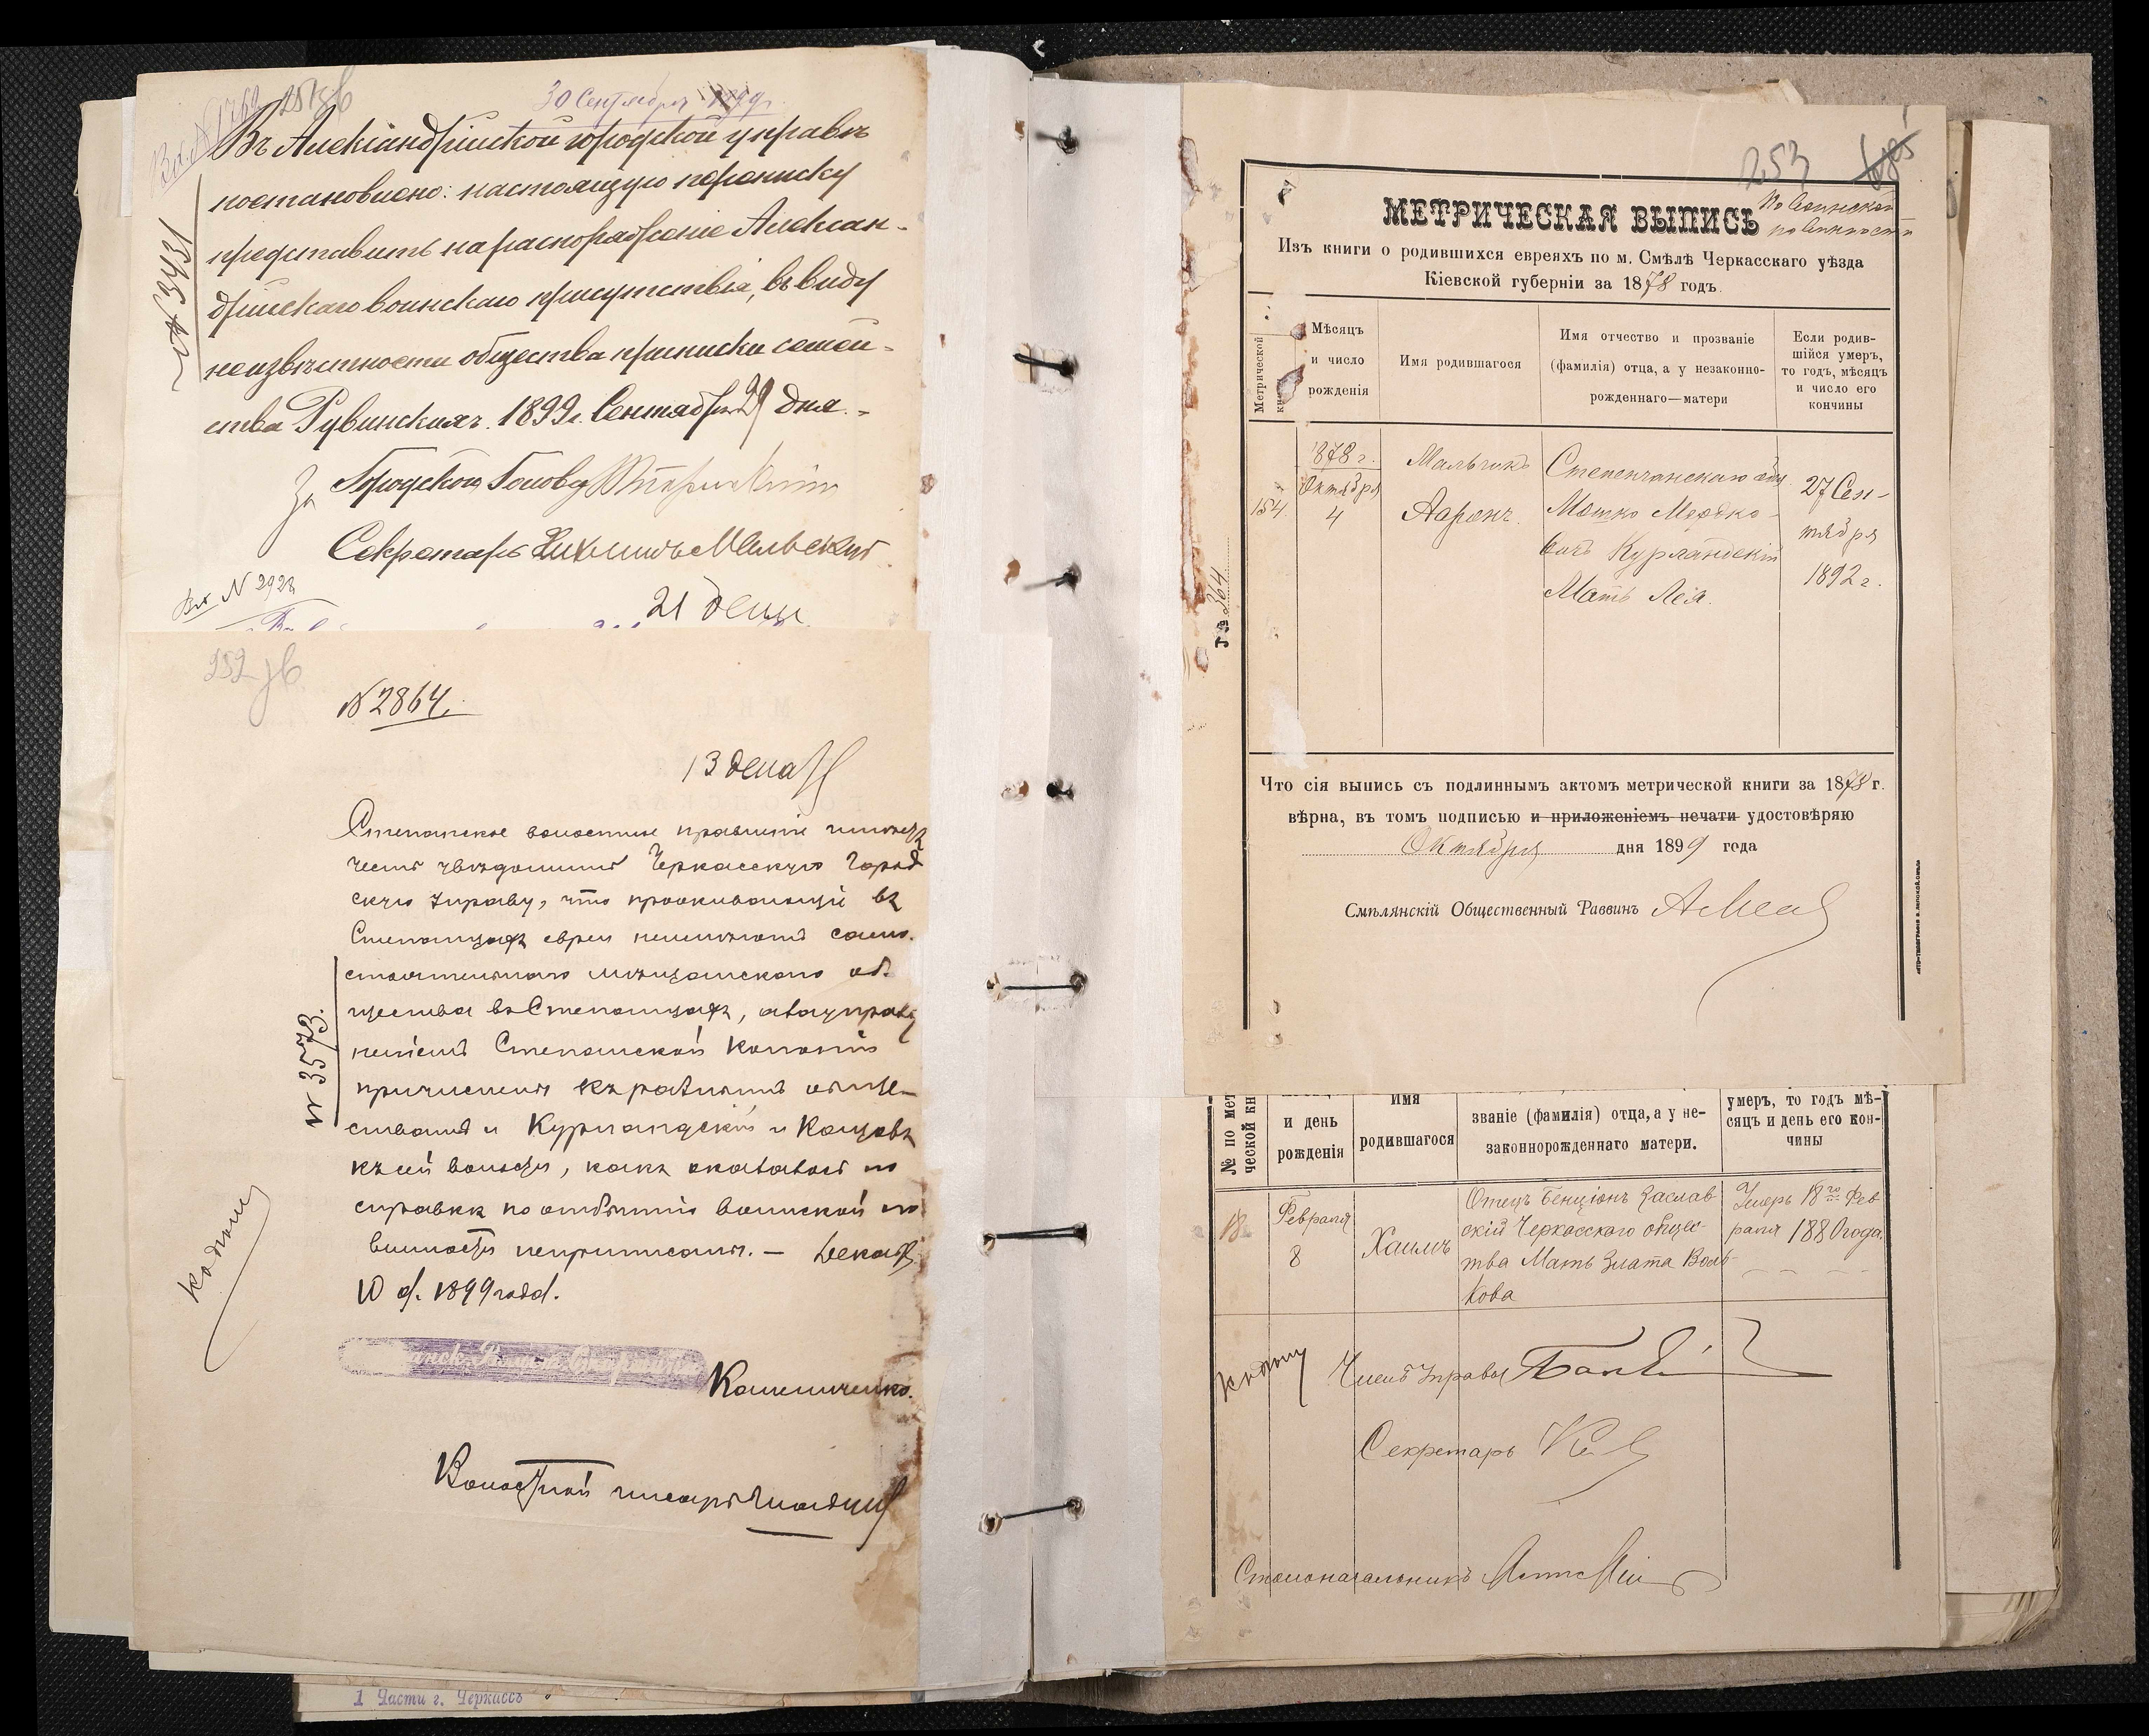 30 Сентября 1899 г.
Вх. № 1769
Въ Александрійской городской управѣ
постановлено: настоящую переписку
представить на распоряженіе Алексан-
дрійскаго воинскаго присутствія, въ виду
неизвѣстности общества приписки семей-
ства Рувинскихъ. 1899 г. Сентября 29 дня.-
№ 3431
За Городского Голову
Секретарь
Вх. № 2923
21 дека
252 зв
№ 2864.
13 дека
Степанское волостное правленіе имѣетъ
честь увѣдомить Черкасскую Город
скую Управу, что проживающіе въ
Степанцахъ евреи неимѣютъ само-
стоятельнаго мѣщанскаго об-
щества въ Степанцахъ, а
Степанской Колоніи
причислены къ разнымъ обще-
ствамъ и Курландскій и Канцовъ
къ сей волости, какъ оказалось по
справкѣ по отбытію воинской по
винности неприписаны. — Декабр
10 д. 1899 года.
№ 3573.
Къ дѣлу
Волостной писарь
1 Части г. Черкассъ
253
МЕТРИЧЕСКАЯ ВЫПИСЬ
По воинской
повинности
Изъ книги о родившихся евреяхъ по м. Смѣлѣ Черкасскаго уѣзда
Кіевской губерніи за 1878 годъ.
Метрической
Мѣсяцъ
и число
рожденія
Имя родившагося
Имя отчество и прозваніе
(фамилія) отца, а у незаконно-
рожденнаго—матери
Если родив-
шійся умеръ,
то годъ, мѣсяцъ
и число его
кончины
154.
1878 г.
Октября
4
Мальчикъ
Ааронъ.
Степенчанскаго общ
Мошко Мордко-
вичъ Курляндскій
Мать Лея.
27 Сен-
тября
1892 г.
№ 364
Что сія выпись съ подлиннымъ актомъ метрической книги за 1878 г.
вѣрна, въ томъ подписью и приложеніемъ печати удостовѣряю
Октября дня 1899 года
Смѣлянскій Общественный Раввинъ
№ по мет
ческой кн
и день
рожденія
Имя
родившагося
званіе (фамилія) отца, а у не-
законнорожденнаго матери.
умеръ, то годъ мѣ-
сяцъ и день его кон-
чины
18.
Февраля
8
Хаимъ
Отецъ Бенціонъ Заслав-
скій Черкасскаго общес-
тва Мать Злата Воль-
кова
Умеръ 18го Фев
раля 1880 года.
Къ дѣлу
Членъ Управы
Секретарь
Столоначальникъ